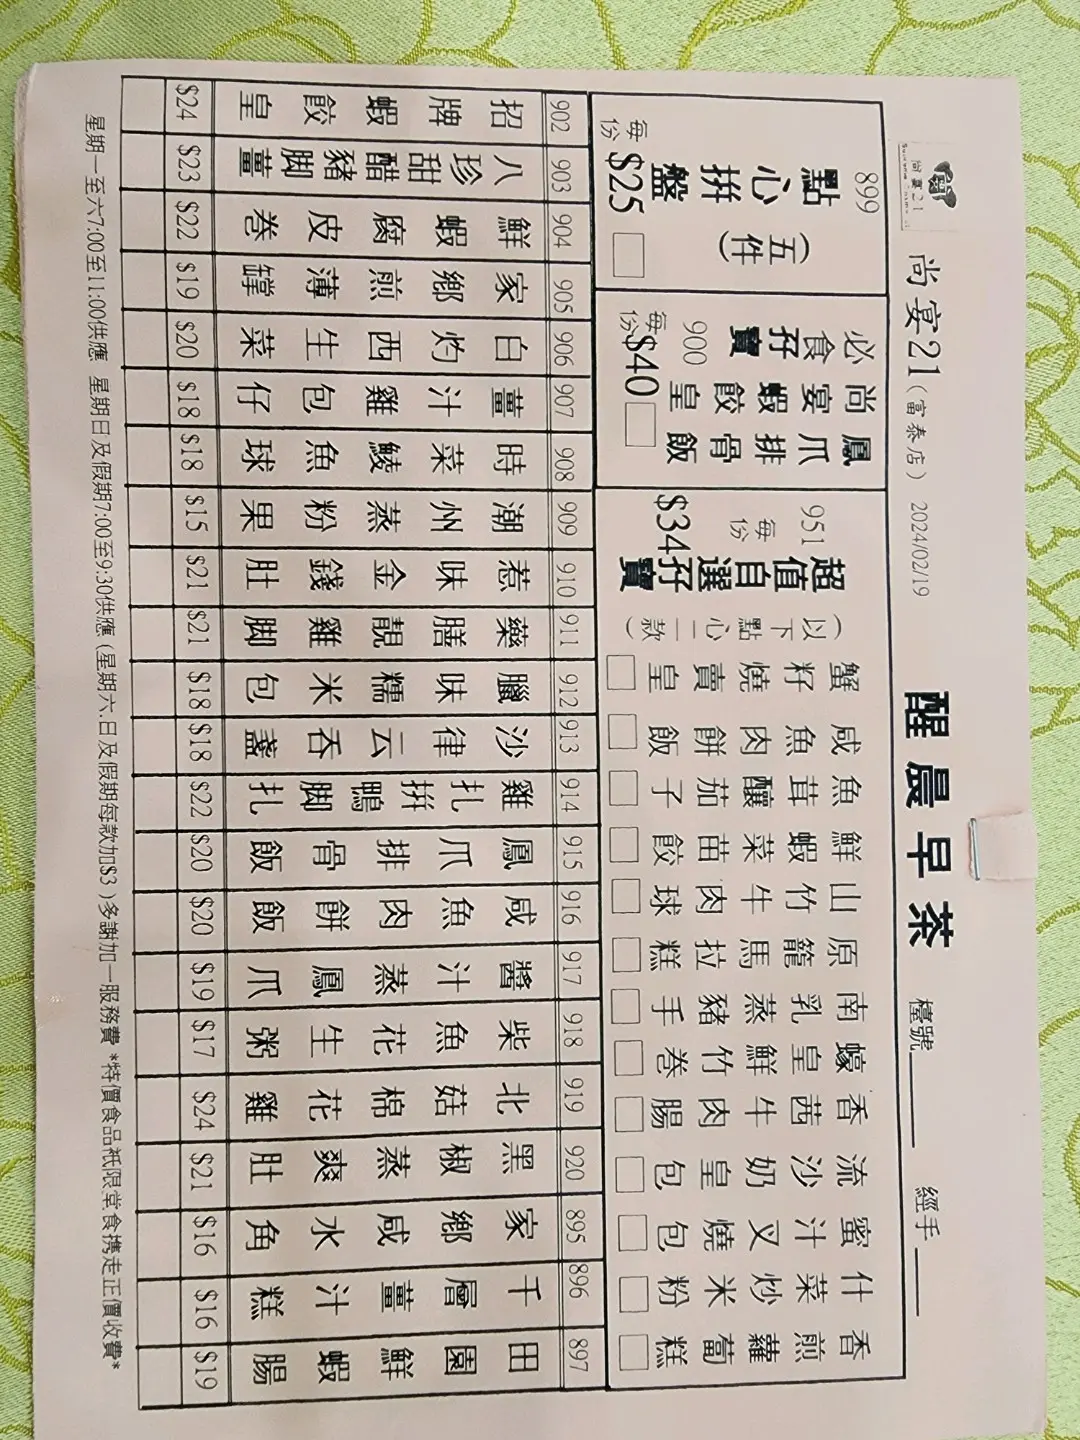 尚宴21
尚宴21（富泰店） 2024/02/19
醒晨早茶
檯號
經手
899
點心拼盤（五件）
每份$25
必食孖寶
900
每份$40
尚宴蝦餃皇
鳳爪排骨飯
951
每份$34
超值自選孖寶
（以下點心二款）
蟹籽燒賣皇
咸魚肉餅飯
魚茸釀茄子
鮮蝦菜苗餃
山竹牛肉球
原籠馬拉糕
南乳蒸豬手
蠔皇鮮竹卷
香茜牛肉腸
流沙奶皇包
蜜汁叉燒包
什菜炒米粉
香煎蘿蔔糕
902 招牌蝦餃皇 $24
903 八珍甜醋豬脚薑 $23
904 鮮蝦腐皮卷 $22
905 家鄉煎薄罉 $19
906 白灼西生菜 $20
907 薑汁雞包仔 $18
908 時菜鯪魚球 $18
909 潮州蒸粉果 $15
910 惹味金錢肚 $21
911 藥膳靚雞脚 $21
912 臘味糯米包 $18
913 沙律云吞盞 $18
914 雞扎拼鴨脚扎 $22
915 鳳爪排骨飯 $20
916 咸魚肉餅飯 $20
917 醬汁蒸鳳爪 $19
918 柴魚花生粥 $17
919 北菇棉花雞 $24
920 黑椒蒸爽肚 $21
895 家鄉咸水角 $16
896 千層薑汁糕 $16
897 田園鮮蝦腸 $19
星期一至六7:00至11:00供應 星期日及假期7:00至9:30供應（星期六.日及假期每款加$3）多謝加一服務費 *特價食品衹限堂食携走正價收費*